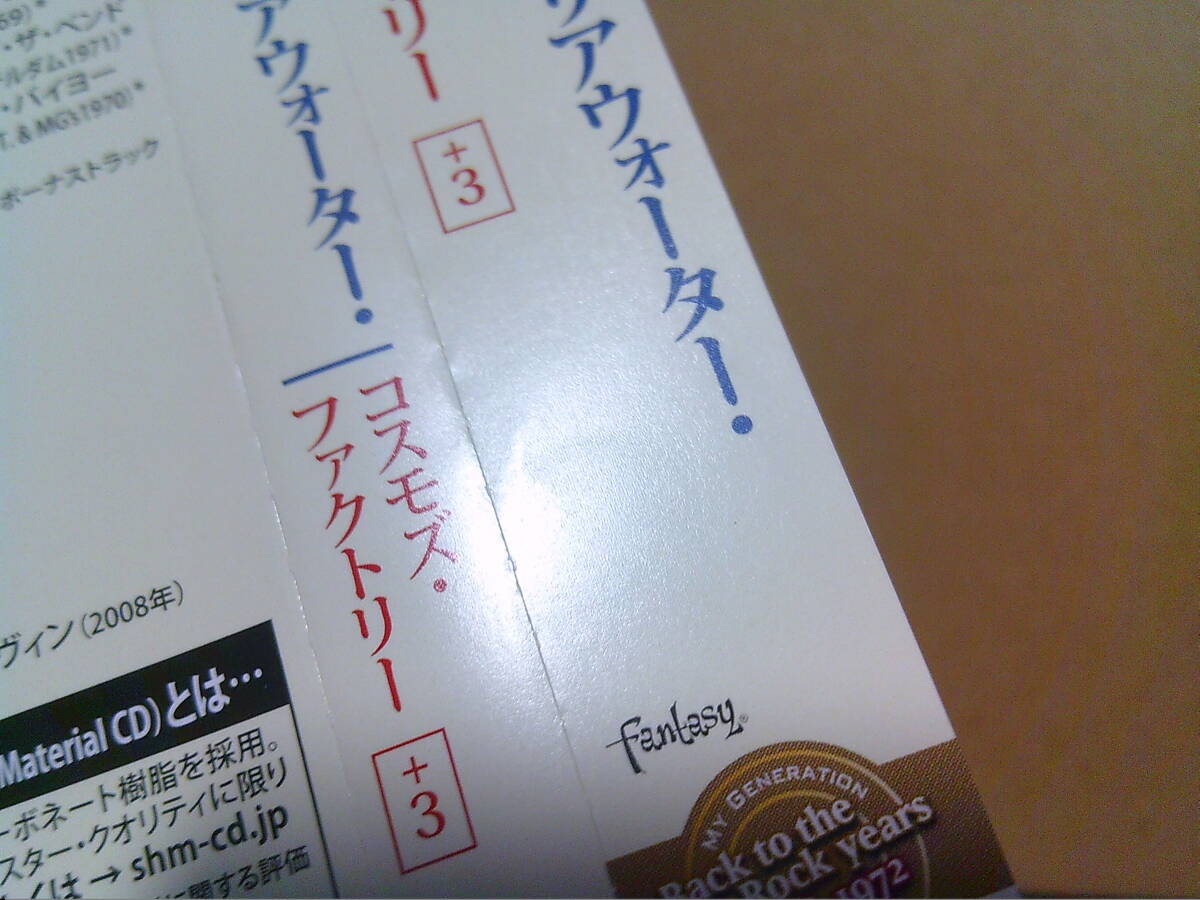 69)*
・ザ・ベンド
ルダム1971)*
・バイヨー
T. & MG's1970)*
ボーナストラック
ヴィン(2008年)
Material CD)とは…
ーボネート樹脂を採用。
スター・クオリティに限り
くは → shm-cd.jp
に関する評価
アウォーター!
コスモズ・
ファクトリー
+3
リー
+3
アウォーター!
fantasy®
MY GENERATION
Back to the
Rock years
1972